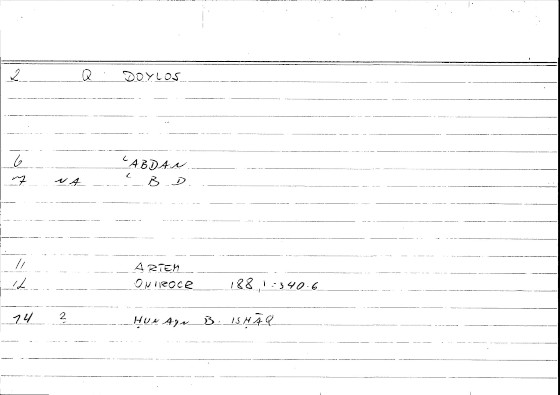 2 Q DOYLOS
6 ʿABDAN
7 NA ʿ B D
11 ARTEM
12 ONIROCR 188,1 = 340.6
14 2 ḤUNAYN B. ISḤĀQ